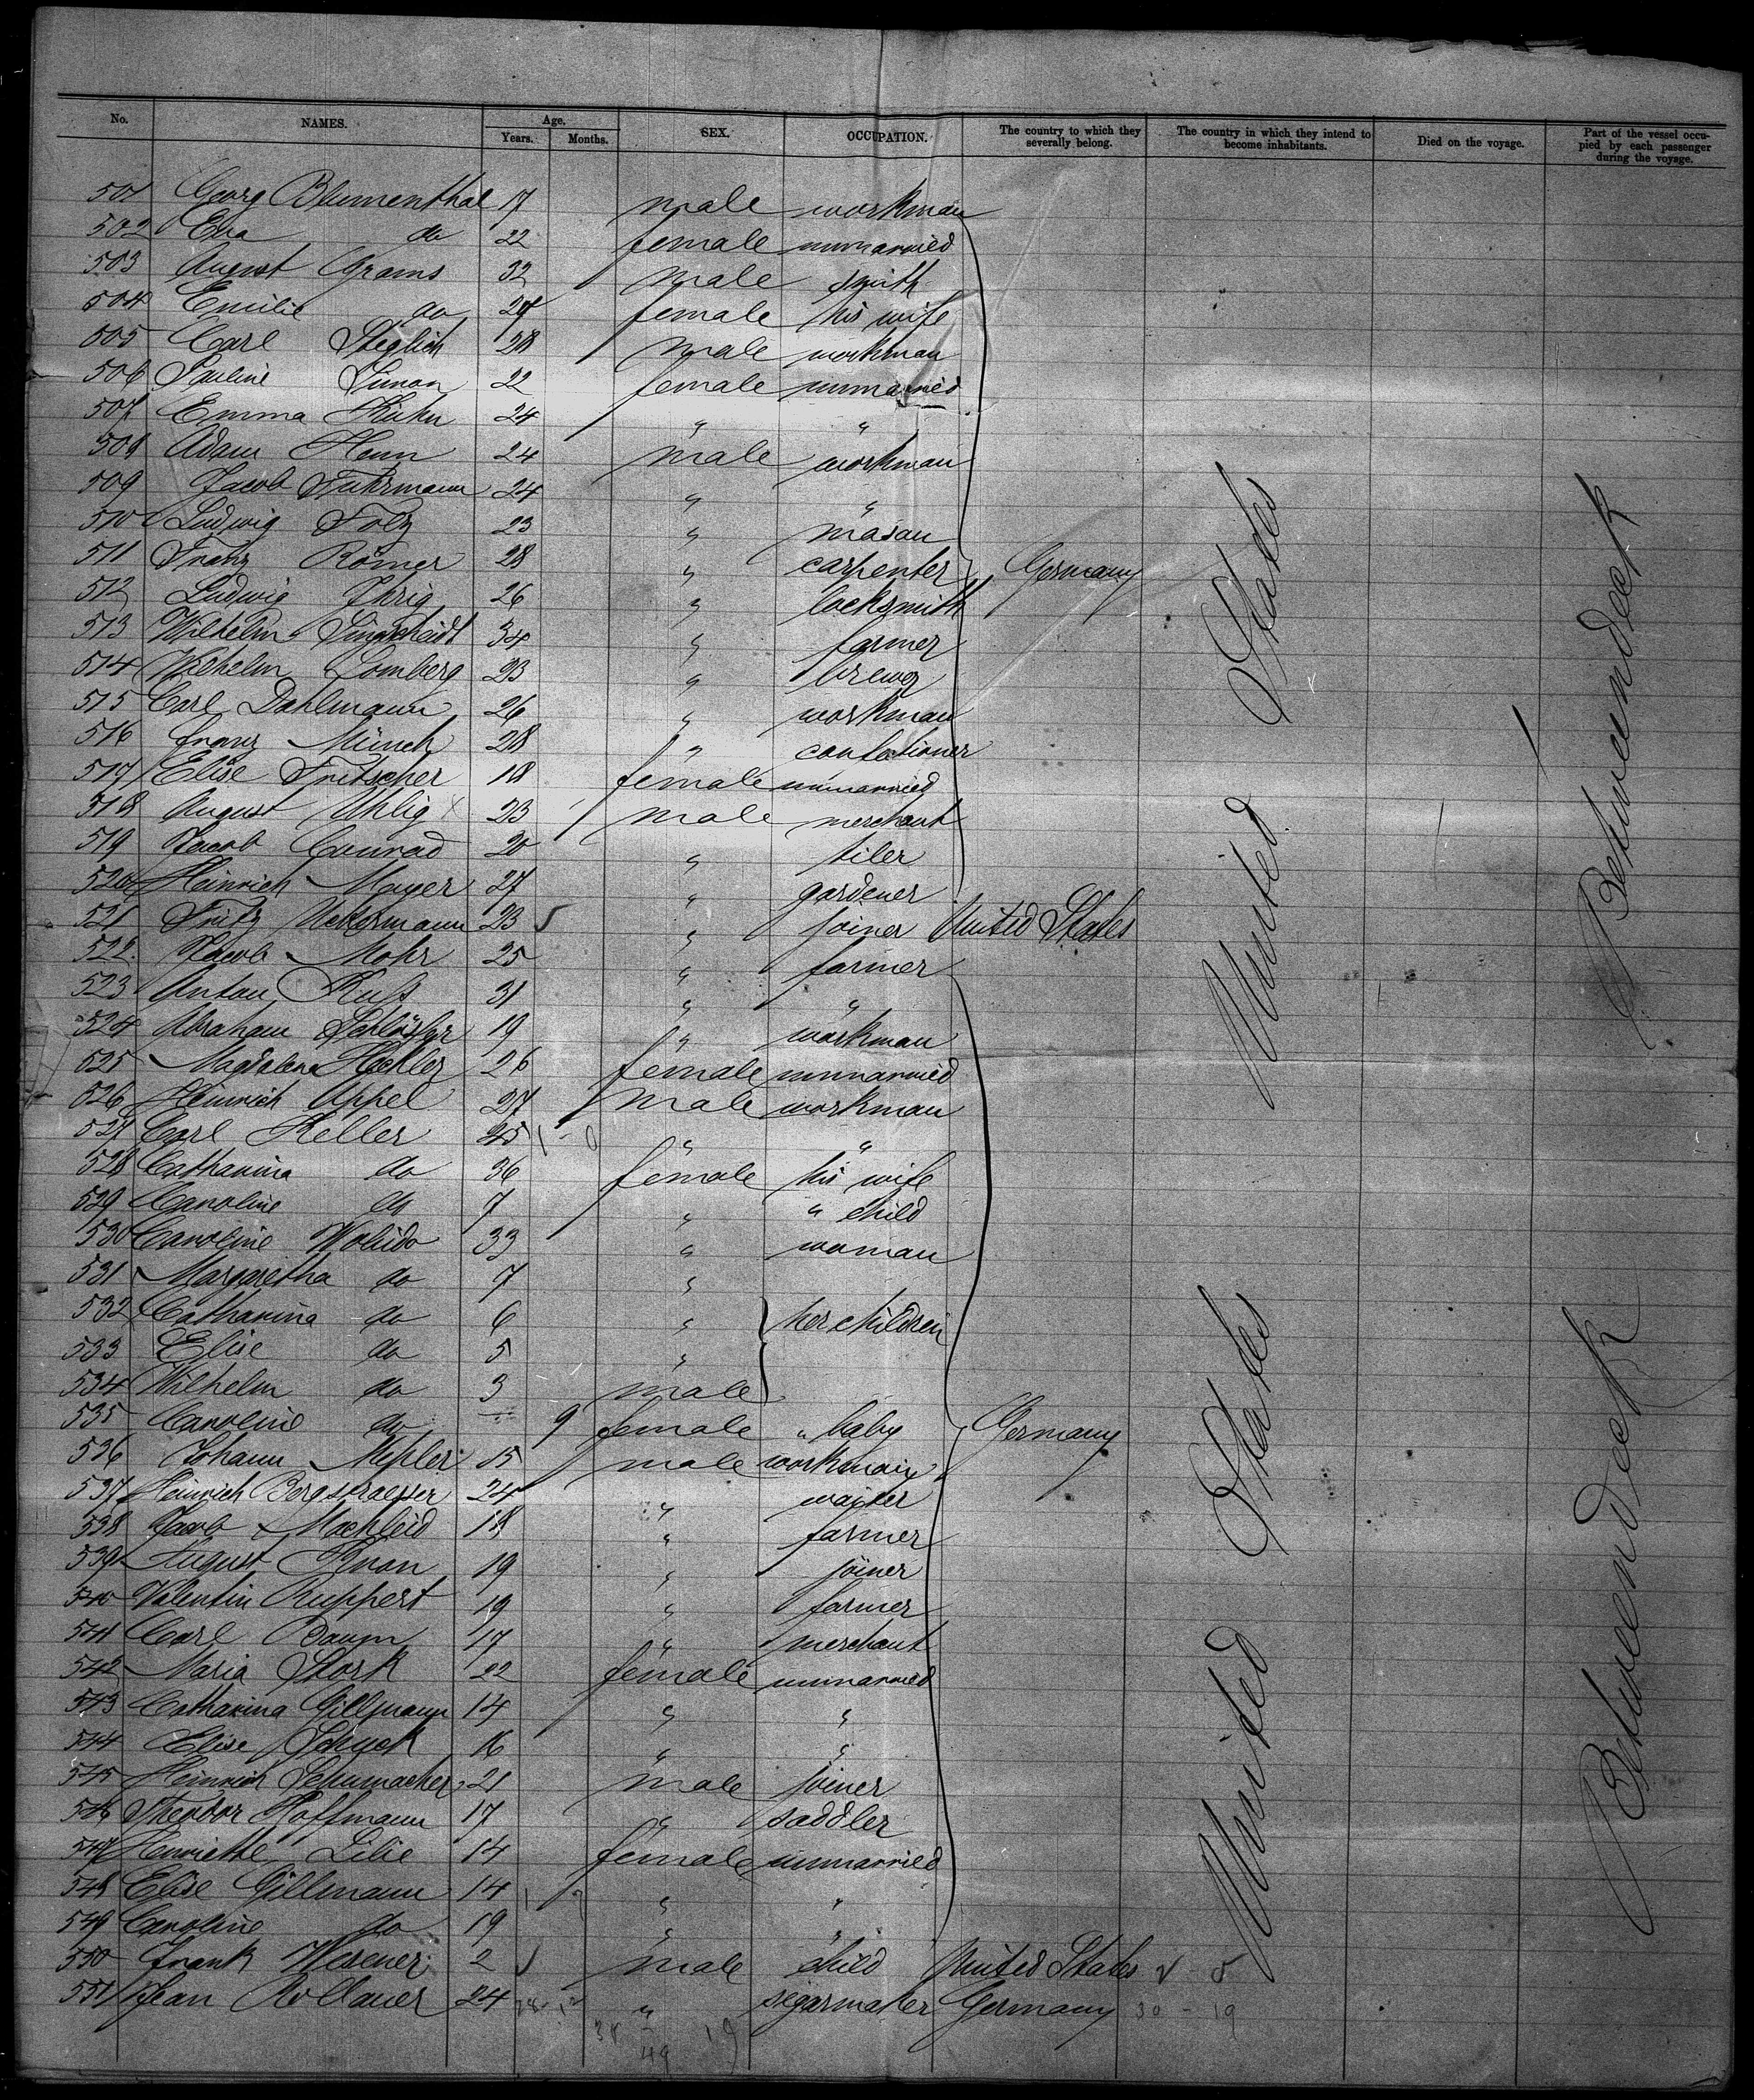 No. NAMES. Age. SEX. OCCUPATION. The country to which they severally belong. The country in which they intend to become inhabitants. Died on the voyage. Part of the vessel occupied by each passenger during the voyage.
Years. Months.
501 Georg Blumenthal 17 male workman
502 Eva do 22 female unmarried
503 August Grams 32 male smith
504 Emilie do 24 female his wife
505 Carl Steglich 28 male workman
506 Pauline Simon 22 female unmarried
507 Emma Kuhn 24 " "
508 Adam Henn 24 male workman
509 Jacob Fuhrmann 24 " "
510 Ludwig Folz 23 " masau
511 Franz Römer 28 " carpenter Germany
512 Ludwig Ihrig 26 " locksmith
513 Wilhelm 34 " farmer
514 Wilhelm Lomberg 23 " brewer
515 Carl Dahlmann 26 " workman
516 Franz Münch 28 " confectioner
517 Elise Fritscher 18 female unmarried
518 August Uhlig 23 male merchant
519 Jacob Conrad 20 " tiler
520 Heinrich Mayer 27 " gardener
521 Fritz Ackermann 23 " joiner United States
522 Jacob Mohr 25 " farmer
523 Anton Kuß 31 " "
524 Abraham 19 " workman
525 Magdalena 26 female unmarried
526 Heinrich Appel 27 male workman
527 Carl Keller 45 " "
528 Catharina do 36 female his wife
529 Caroline do 7 " " child
530 Caroline 33 " woman
531 Margaretha do 7 "
532 Catharina do 6 " her children
533 Elise do 5 "
534 Wilhelm do 3 male
535 Caroline do 9 female " baby Germany
536 Johann 15 male workman
537 Heinrich Bergstraeßer 24 " waiter
538 Jacob 18 " farmer
539 August 19 " joiner
540 Valentin Ruppert 19 " farmer
541 Carl Baum 17 " merchant
542 Maria Stork 22 female unmarried
543 Catharina Gillmann 14 " "
544 Elise Schuck 16 " "
545 Heinrich Schumacher 21 male joiner
546 Theodor Hoffmann 17 " saddler
547 Henriette Lilie 14 female unmarried
548 Elise Gillmann 14 " "
549 Caroline do 19 " "
550 Frank Wesener 2 male child United States
551 Jean Rollauer 24 " segarmaker Germany 30 - 19
49
United States
United States
Betweendeck
Betweendeck